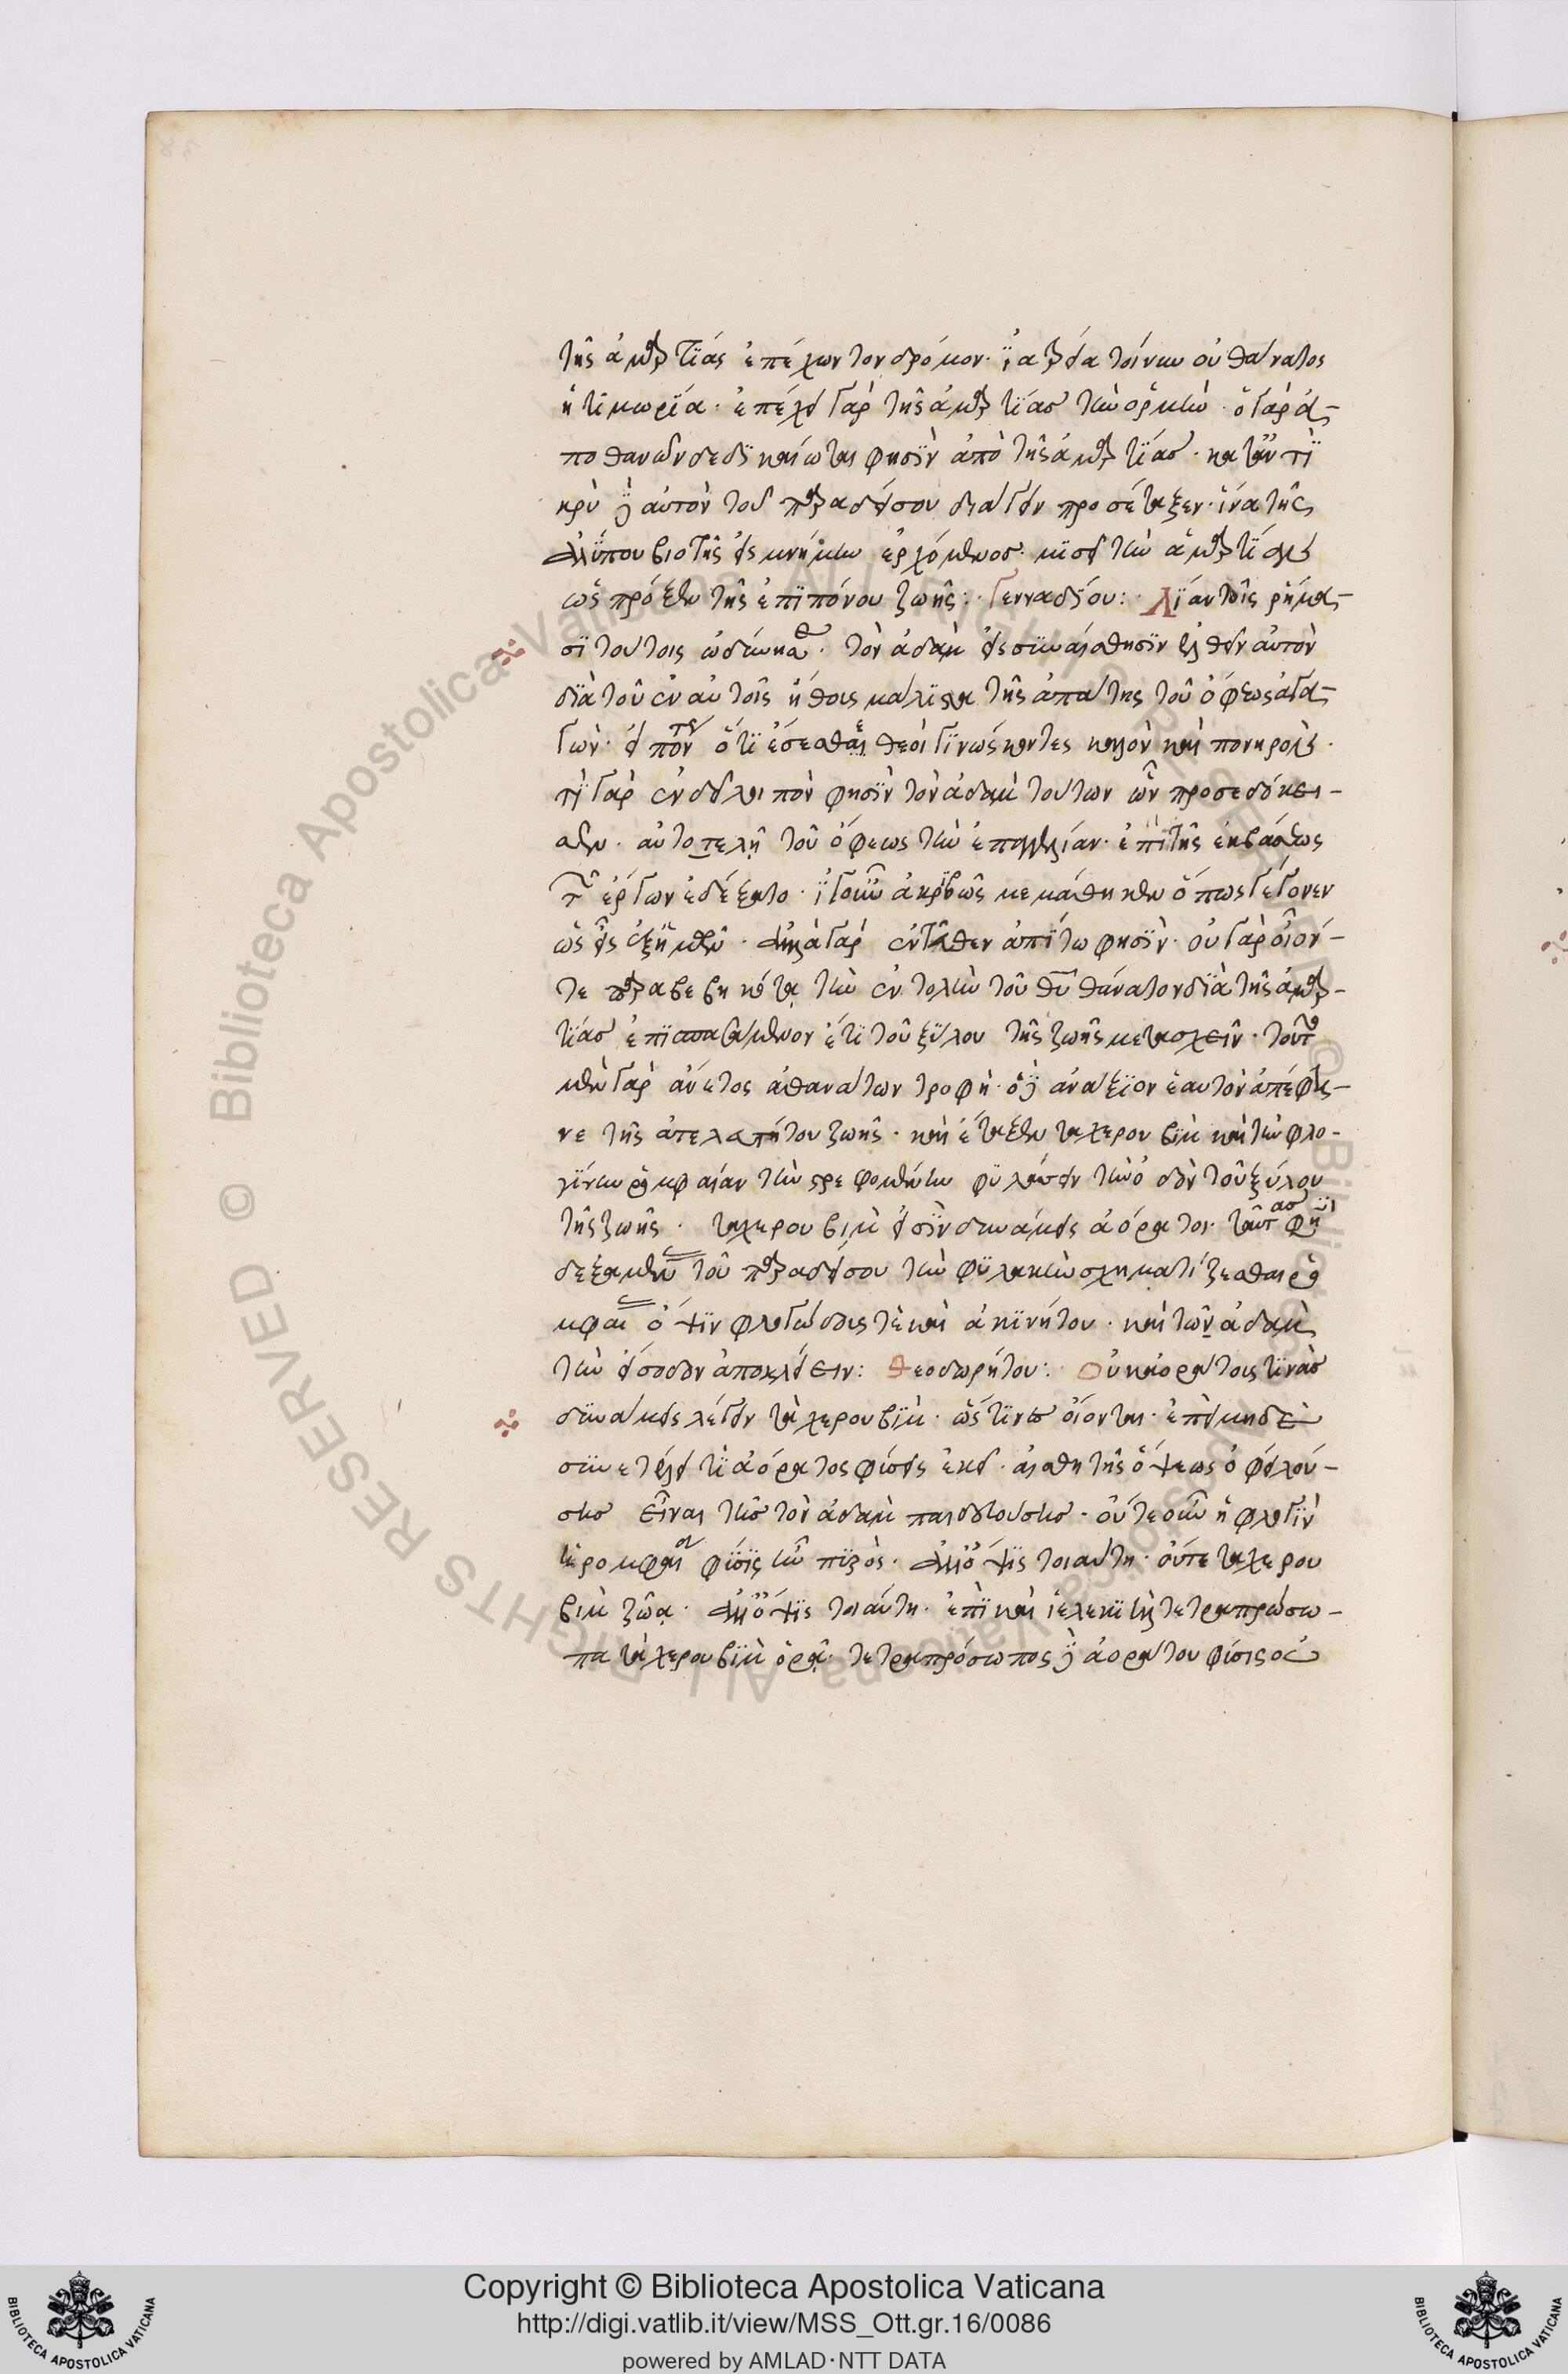 τῆς ἁμαρτίας ἐπέχων τὸν δρόμον· ἰατρεία τοίνυν οὐ θάνατος
ἡ τιμωρία· ἐπέχει γὰρ τῆς ἁμαρτίας τὴν ὁρμὴν· ὁ γὰρ ἀ-
ποθανὼν δεδικαίωται φησὶν ἀπὸ τῆς ἁμαρτίας· καταντι
κρὺ δὲ αὐτὸν τοῦ παραδείσου διάγειν προσέταξεν· ἵνα τῆς
ἀλύπου βιοτῆς εἰς μνήμην ἐρχόμενος· μισεῖ τὴν ἁμαρτίαν
ὡς πρόξενον τῆς ἐπιπόνου ζωῆς: Γενναδίου: Λίαν τοῖς ῥήμα-
σι τούτοις τὸν ἀδὰμ εἰς συναίσθησιν ἐλθεῖν αὐτὸν
διὰ τοῦ ἐν αὐτοῖς ἤθους μάλιστα τῆς ἀπάτης τοῦ ὄφεως ἀγα-
γών· εἰπόντος ὅτι ἔσεσθαι θεοὶ γινώσκοντες καλὸν καὶ πονηρόν·
τί γὰρ ἐνδεῖ λοιπὸν φησὶν τὸν ἀδὰμ τούτων ὧν προσεδόκει-
σεν· αὐτοτελῆ τοῦ ὄφεως τὴν ἐπαγγελίαν· ἐπὶ τῆς ἐκβάσεως
τῶν ἔργων ἐδέξατο· ἀκριβῶς μεμάθηκεν ὅπως γέγονεν
ὡς εἷς ἐξ ἡμῶν· ἀλλὰ γὰρ ἐντεῦθεν ἀπίτω φησὶν· οὐ γὰρ οἷόν-
τε παραβεβηκότα τὴν ἐντολὴν τοῦ θυ θάνατον διὰ τῆς ἁμαρ-
τίας ἐπισπασάμενον ἔτι τοῦ ξύλου τῆς ζωῆς μετασχεῖν· τοῦτο
μὲν γὰρ ἀθανάτων τροφὴ· ὁ δὲ ἀνάξιον ἑαυτὸν ἀπέφη-
νε τῆς ζωῆς· καὶ ἔταξεν τὰ χερουβὶμ καὶ τὴν φλο-
γίνην ῥομφαίαν τὴν στρεφομένην φυλάσσειν τὴν ὁδὸν τοῦ ξύλου
τῆς ζωῆς· τὰ χερουβὶμ εἰσὶν δυνάμεις ἀόρατοι· ταύτας φησὶ
δεξαμένας τοῦ παραδείσου τὴν φυλακὴν σχηματίζεσθαι ῥο
μφαίας ὄψιν φλογώδους τὲ καὶ ἀκινήτου· καὶ τῶν ἀδὰμ
τὴν εἴσοδον ἀποκλείειν: Θεοδωρήτου: Οὐκ ἀοράτους τινὰς
δυνάμεις λέγειν τὰ χερουβὶμ· ὥς τινες οἴονται· ἐπεὶ μηδὲ
συνετέλει τι ἀόρατος φύσις ἐκεῖ· αἰσθητῆς ὄψεως ὀφειλού-
σης εἶναι τῆς τὸν ἀδὰμ παιδευούσης· οὔτε οὖν ἡ φλογίνη
ῥομφαία φύσις ἦν πυρὸς· ἀλλ᾽ ὄψις τοιαύτη· οὔτε τὰ χερου
βὶμ ζῶα· ἀλλ᾽ ὄψις τοιαύτη· ἐπὶ καὶ τετραπρόσω-
πα τὰ χερουβὶμ ὁρᾷ· τετραπρόσωπος δὲ ἀοράτου φύσις οὐ